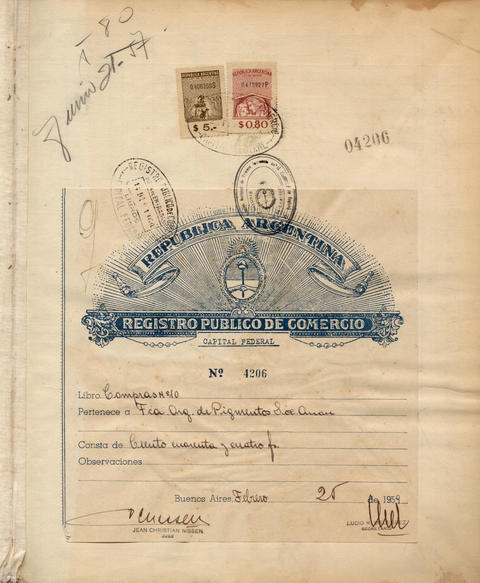 1-80
Junio 21-57.
REPUBLICA ARGENTINA
$ 5.-
REPUBLICA ARGENTINA
$ 0.80
04206
REPUBLICA ARGENTINA
REGISTRO PUBLICO DE COMERCIO
CAPITAL FEDERAL
Nº 4206
Libro Compras Nº10
Pertenece a Fca Arg. de Pigmentos Soc Anon
Consta de Ciento cuarenta y cuatro fs.
Observaciones
Buenos Aires, Febrero 25 de 195
JEAN CHRISTIAN NISSEN
JUEZ
LUCIO
SECRETARIO